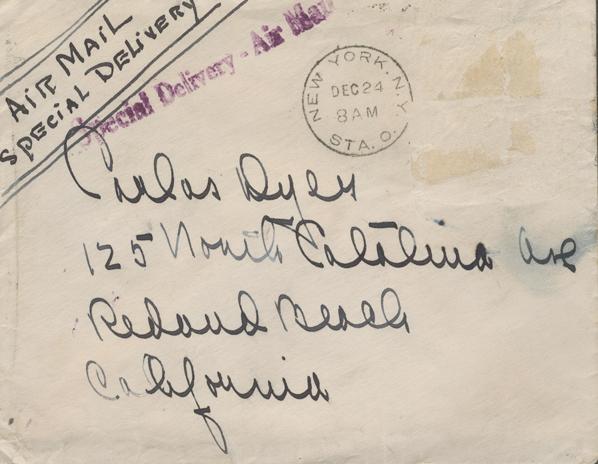 AIR MAIL
SPECIAL DELIVERY
Special Delivery - Air Mail
NEW YORK, N.Y.
DEC 24
8 AM
STA. O.
Carlos Dyer
125 North Catalina Ave
Redondo Beach
California